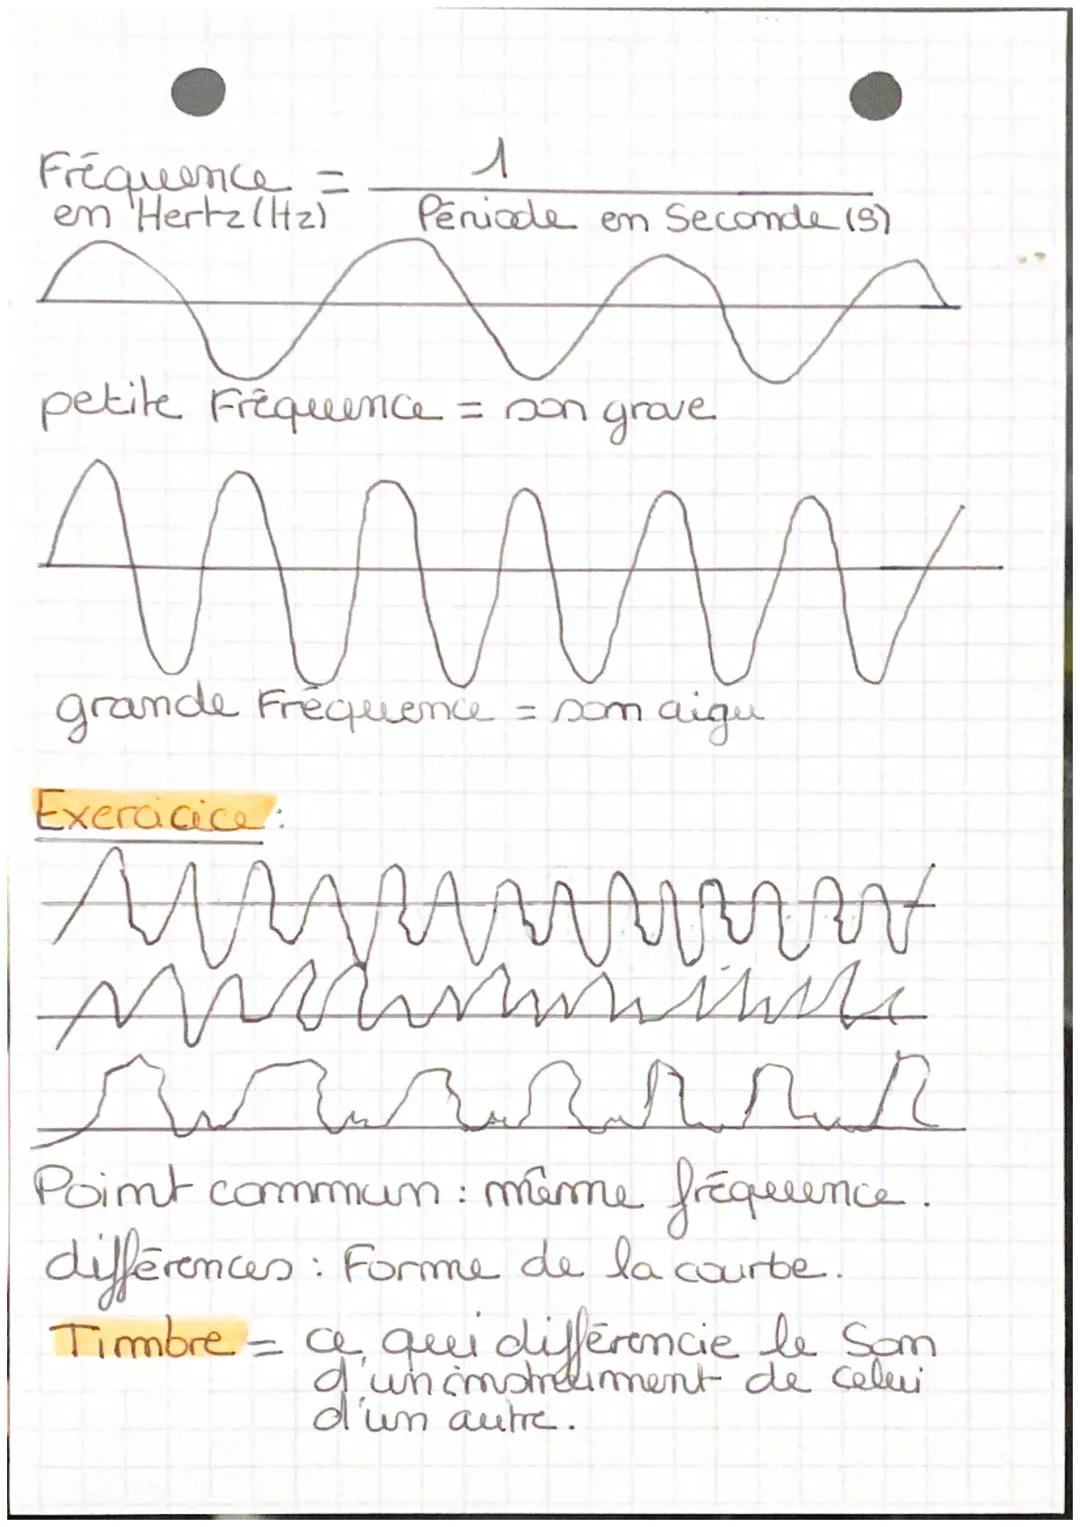 Fréquence = 1
en Hertz (Hz) Période en Seconde (s)
petite Fréquence = son grave
grande Fréquence = son aigu
Exercice :
Point commun : même fréquence.
différences : Forme de la courbe.
Timbre = ce qui différencie le Son
d'un instrument de celui
d'un autre.